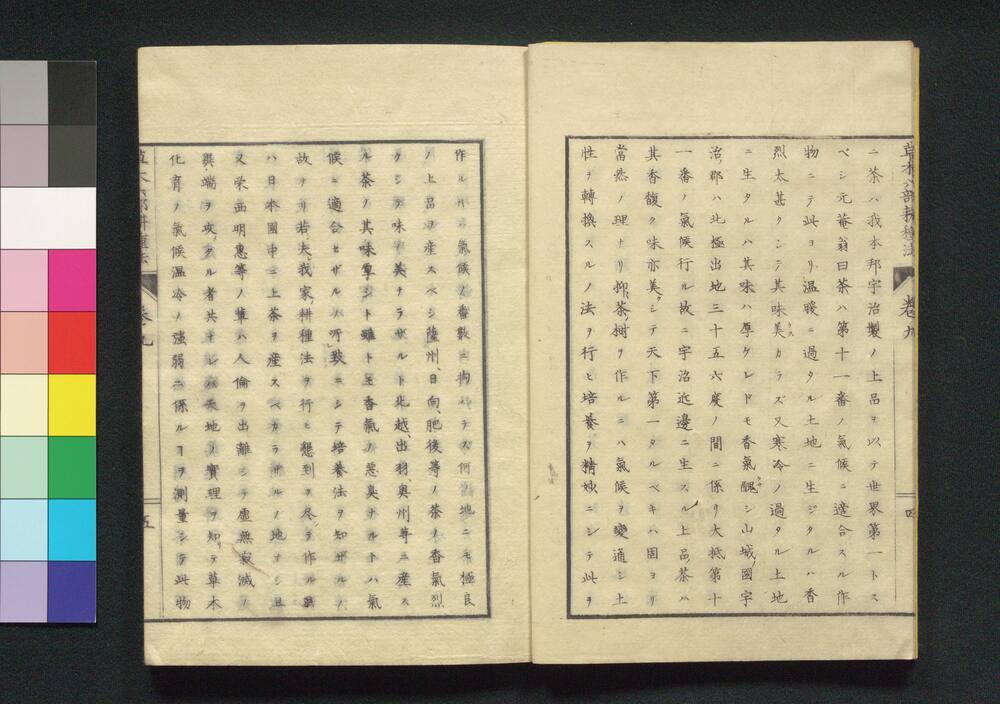 草木六部耕種法 卷九 四
ニ茶ハ我本邦宇治製ノ上品ヲ以テ世界第一トス
ベシ元菴翁曰茶ハ第十一番ノ氣候ニ適合スル作
物ニテ此ヨリ温暖ニ過タル土地ニ生ジタルハ香
烈太甚クシテ其味美カラズ又寒冷ノ過タル土地
ニ生タルハ其味ハ厚ケレドモ香氣醜シ山城國宇
治郡ハ北極出地三十五六度ノ間ニ係リ大抵第十
一番ノ氣候行ル故ニ宇治近邊ニ生スル上品茶ハ
其香馥ク味亦美クシテ天下第一タルベキハ固ヨリ
當然ノ理ナリ抑茶樹ヲ作ルニハ氣候ヲ變通シ土
性ヲ轉換スルノ法ヲ行ヒ培養ヲ精妙ニシテ此ヲ
作ルトキハ氣候ノ番數ニ拘ハラズ何地ニモ極良
ノ上品ヲ産スベシ薩州日向肥後等ノ茶ノ香氣烈
クシテ味ノ美ナラザルト北越出羽奥州等ニ産ス
ル茶ノ其味厚シト雖トモ香氣ノ惡臭ナルトハ氣
候ニ適合セザルノ所致ニシテ培養法ヲ知ザルノ
故ナリ若夫我家耕種法ヲ行ヒ懇到ヲ尽シテ作ル
ハ日本國中ニ上茶ヲ産スベカラザルノ地ナシ且
又栄西明惠等ノ輩ハ人倫ヲ出離シテ虚無寂滅ノ
異端ヲ攻ムル者共ナレバ天地ノ實理ヲ知テ草木
化育ノ氣候温冷ノ強弱ニ係ルヿヲ測量シテ此物
草木六部耕種法 卷九 五